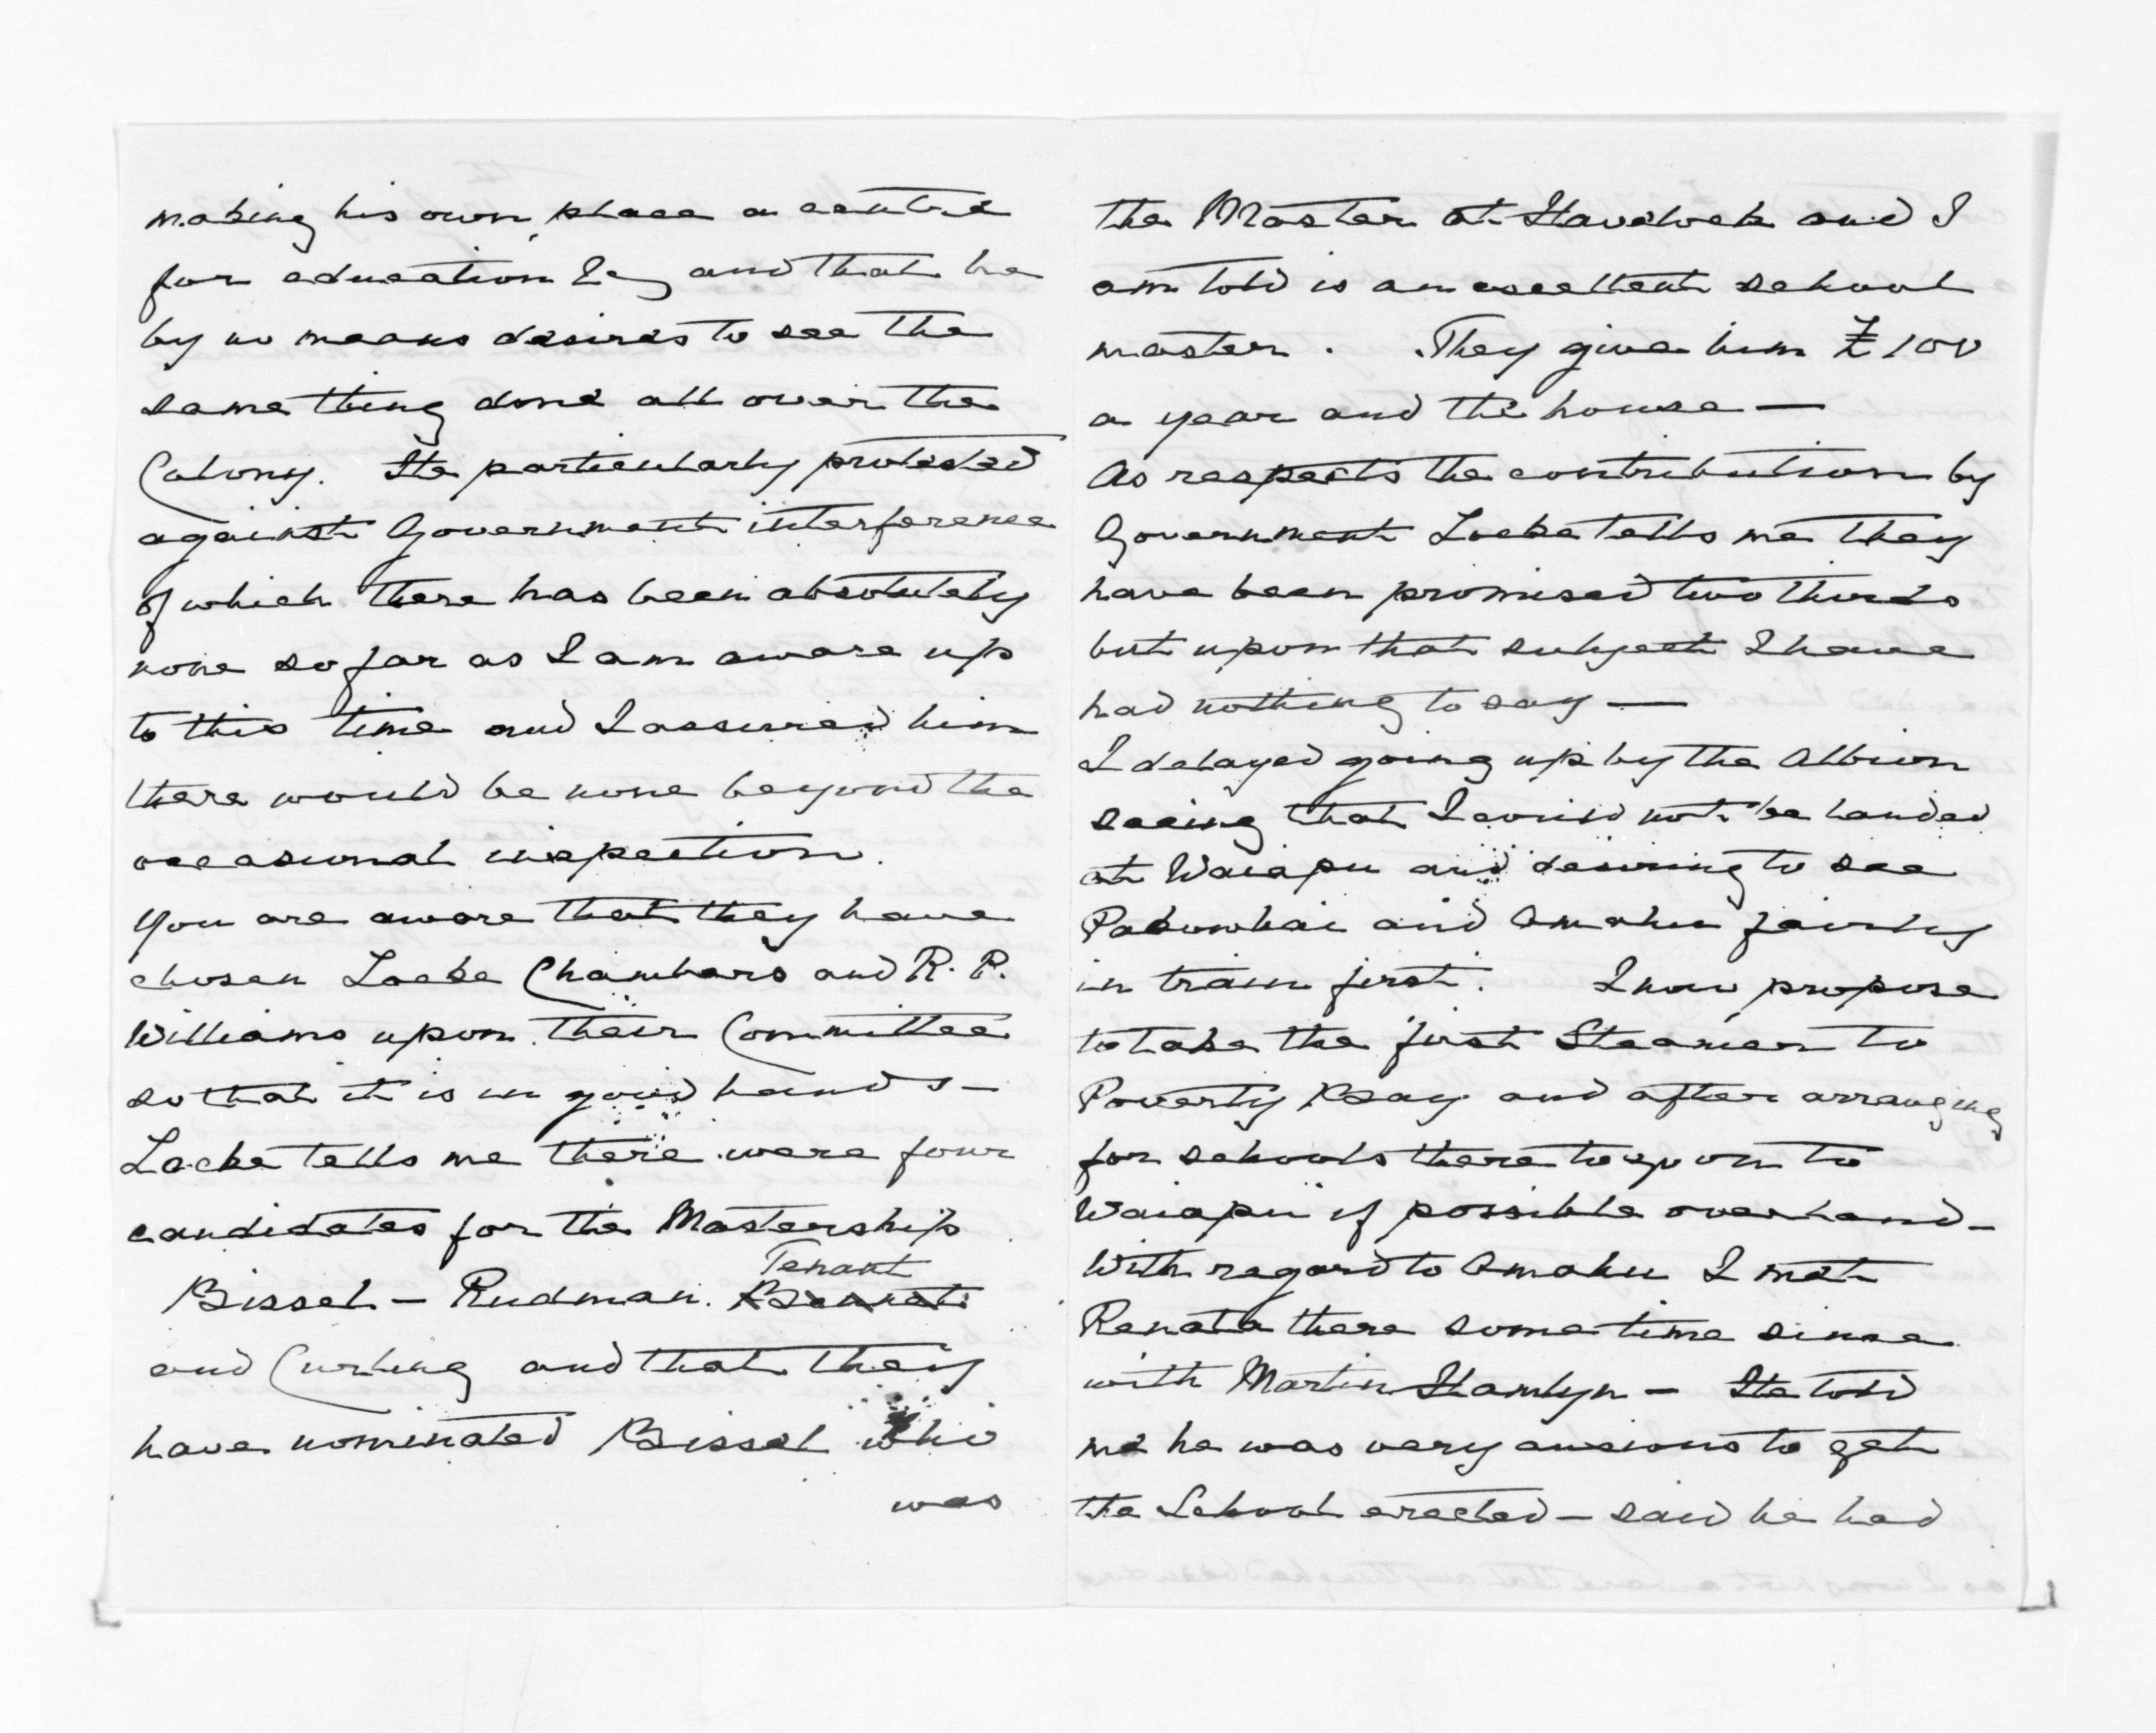 making his own place a centre
for education &c and that he
by no means desires to see the
same thing done all over the
Colony. He particularly protested
against Government interference
of which there has been absolutely
none so far as I am aware up
to this time and I assured him
there would be none beyond the
occasional inspection.
You are aware that they have
chosen Locke Chambers and R. P.
Williams upon their Committee
so that it is in good hands -
Locke tells me there were four
candidates for the Mastership
Tenant
Bissel - Rudman. Bennet
and Curling and that they
have nominated Bissel who
was
the Master at Havelock and I
am told is an excellent school
master. They give him £100
a year and the house —
As respects the contribution by
Government Locke tells me they
have been promised two thirds
but upon that subject I have
had nothing to say —
I delayed going up by the Albion
seeing that I could not be landed
at Waiapu and desiring to see
Pakowhai and Omahu fairly
in train first. I now propose
to take the first Steamer to
Poverty Bay and after arranging
for schools there to go on to
Waiapu if possible overland -
With regard to Omahu I met
Renata there some time since
with Martin Hamlyn - He told
me he was very anxious to get
the School erected - said he had